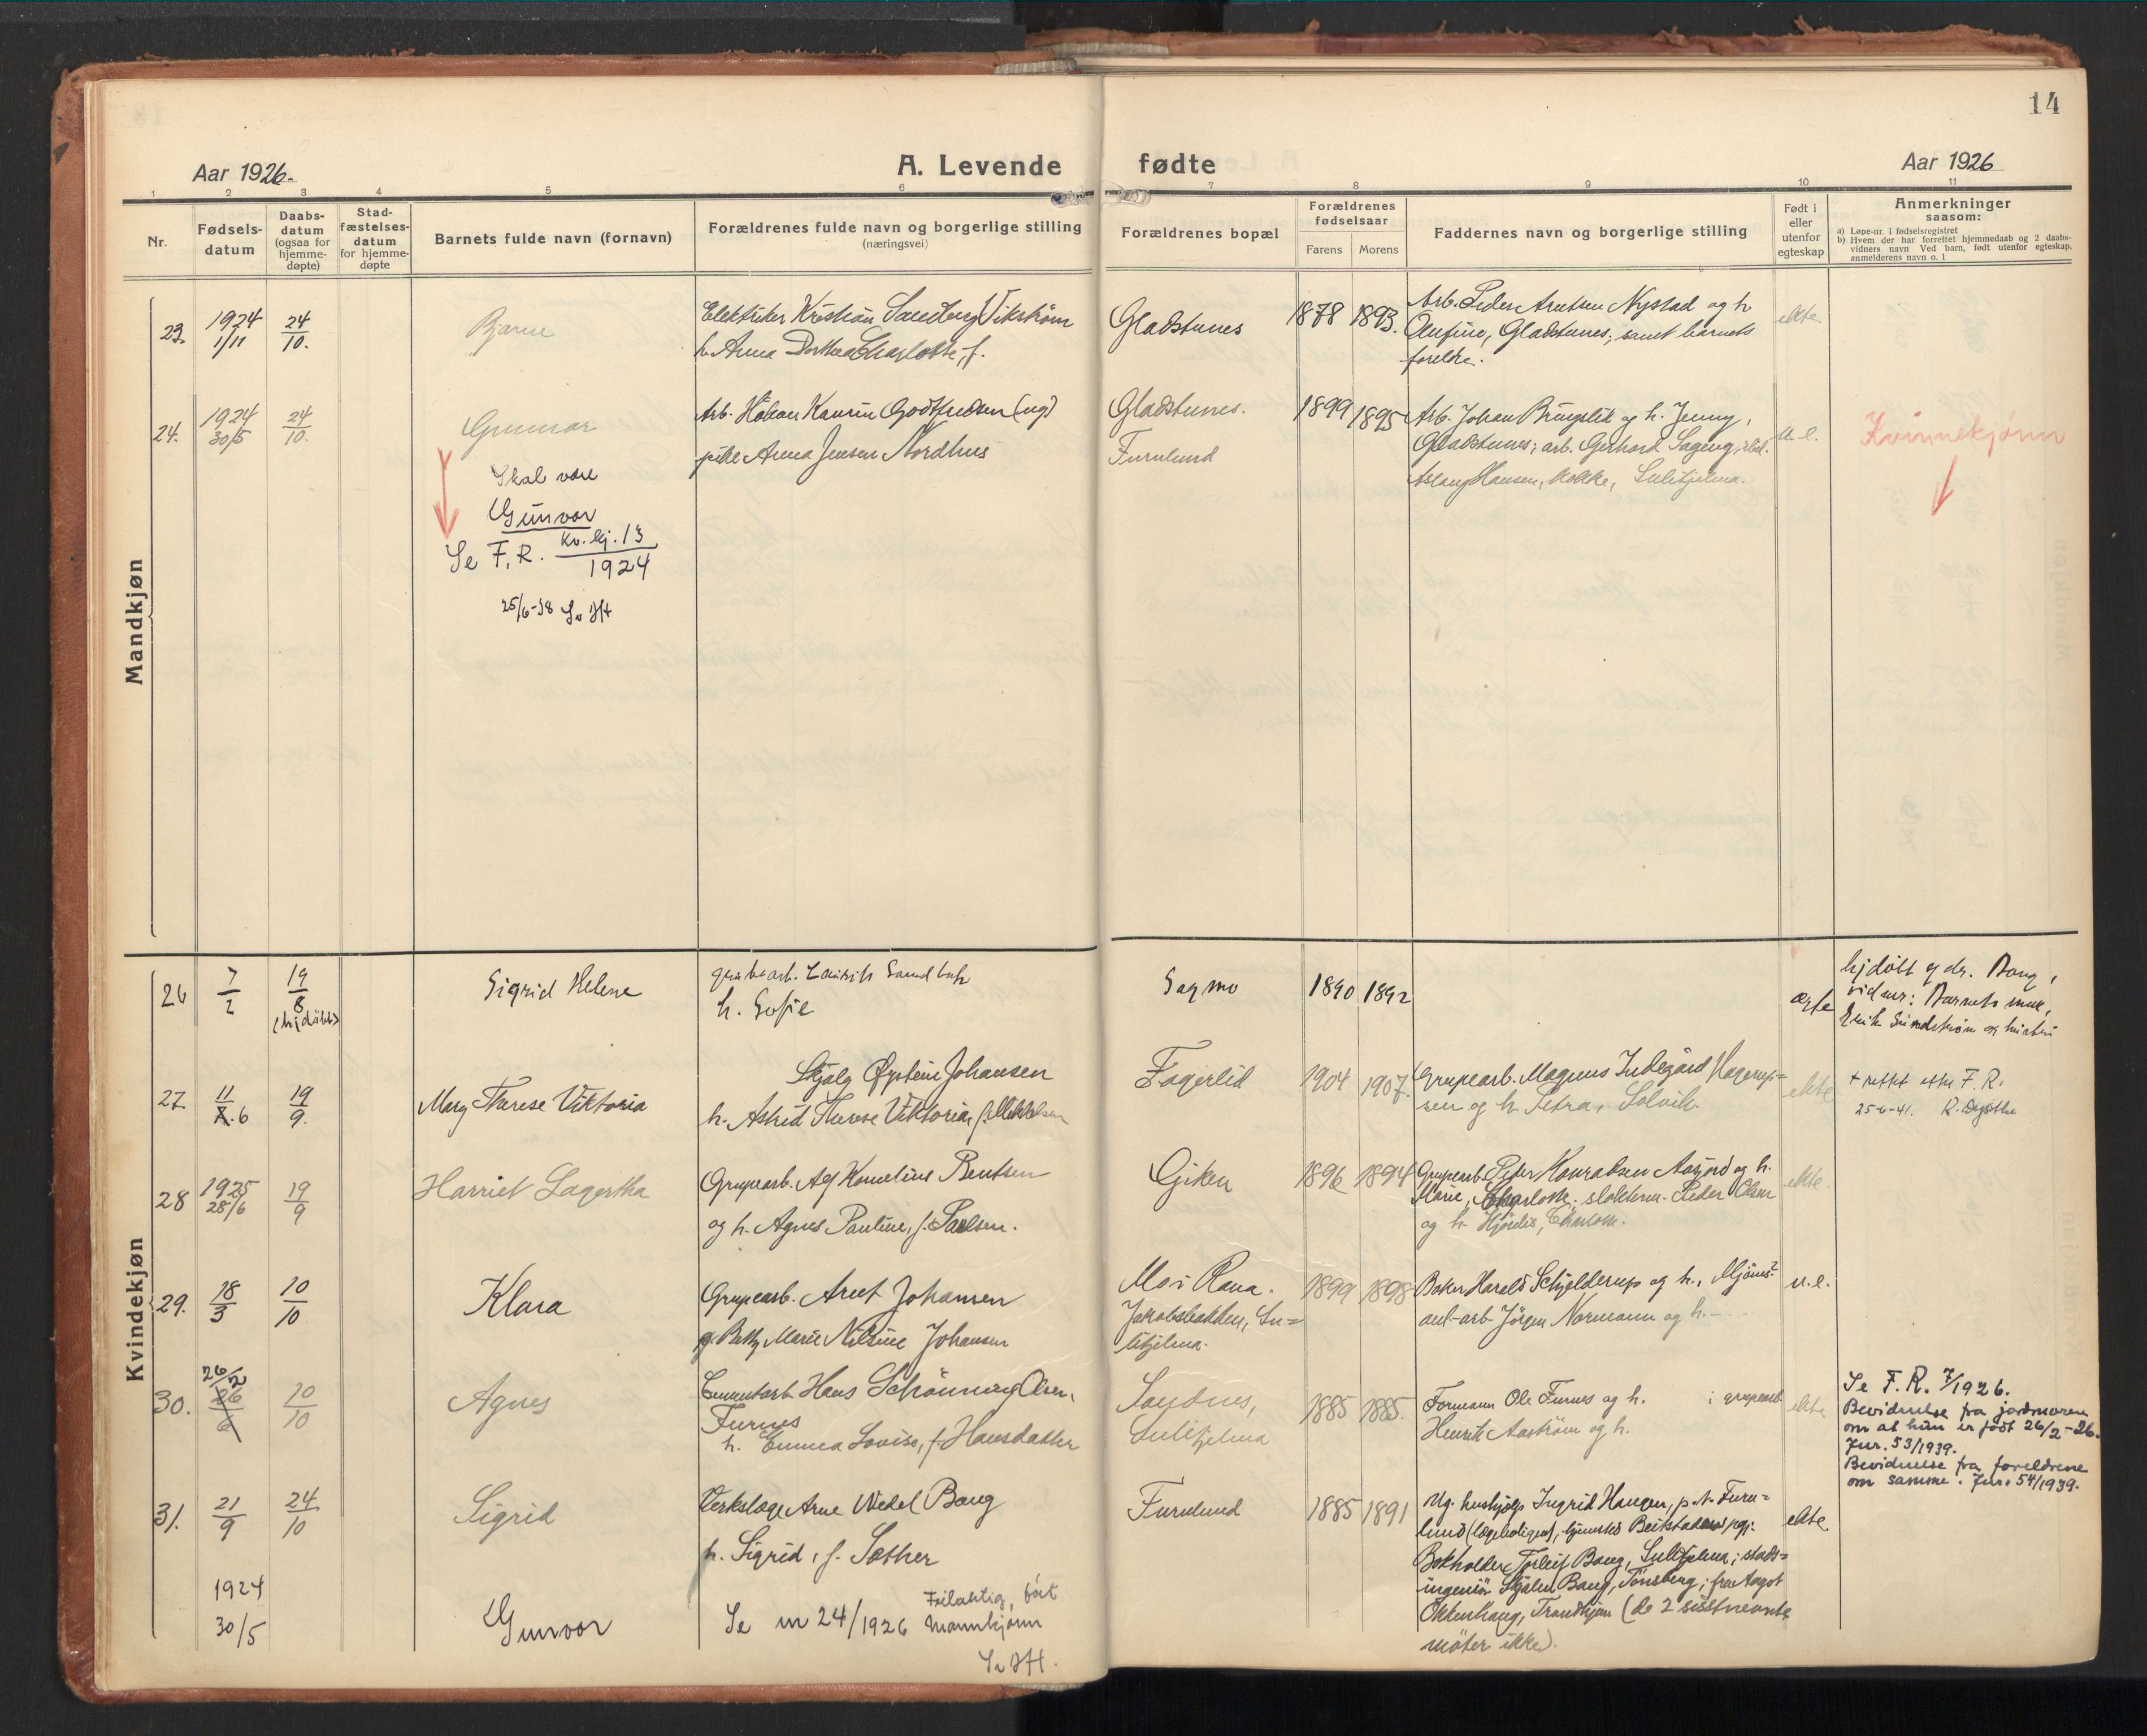 14
Aar 1926.
A. Levende fødte
Aar 1926
1 2 3 4 5 6 7 8 9 10 11
Nr.
Fødsels-
datum
Daabs-
datum
(ogsaa for
hjemme-
døpte)
Stad-
fæstelses-
datum
for hjemme-
døpte
Barnets fulde navn (fornavn)
Forældrenes fulde navn og borgerlige stilling
(næringsvei)
Forældrenes bopæl
Forældrenes
fødselsaar
Farens Morens
Faddernes navn og borgerlige stilling
Født i
eller
utenfor
egteskap
Anmerkninger
saasom:
a) Løpe-nr. i fødselsregistret
b) Hvem der har forrettet hjemmedaab og 2 daabs-
vidners navn Ved barn, født utenfor egteskap,
anmelderens navn o. l
Mandkjøn
23.
1924
1/11
24/10.
Bjarne
Elektriker Kristian Sandberg Vikstrøm
h. Anna Dorthea Charlotte, f.
Gladstunes
1878 1893.
Arb. Peder Arntsen Nystad og h.
Olufine, Gladstunes; samt barnets
forelke.
ekte.
24.
1924
30/5
24/10.
Gunnar
Skal være
Gunvor
Se F.R. Kv.kj. 13
1924
25/6-38
Arb. Håkon Kaurin Godtfredsen (ug)
pike Anna Jensen Nordhus
Gladstunes.
Furulund
1899 1895
Arb. Johan Bringslid og h. Jenny,
Gladstunes; arb. Gerhard Sageng,
Aslaug Hansen, kokke, Sulitjelma.
u.e.
Kvinnekjønn
Kvindekjøn
26
7/2
19/8
(hjdøbt)
Sigrid Helene
grubearb. Laurits Sandbak
h. Sofie
Sagmo
1890 1892
ægte
hjdøbt af dr. Bang,
vidner: Barnets mor,
Erik Sundstrøm og hustru
27
11/7. 6
19/9.
Mary Therese Viktoria
Skjalg Øystein Johansen
h. Astrid Therese Viktoria, f. Mikkelsen
Fagerlid
1904 1907.
Grupearb. Magnus Indegård Hagerup=
sen og h. Petra, Solvik.
ekte
+ rettet etter F.R.
25-6-41.
28
1925
28/6
19/9
Harriet Lagertha
Grupearb. Alf Kornelius Bentsen
og h. Agnes Pauline, f. Paulsen.
Giken
1896 1894
Grupearb. Peter Konradsen Aasjord og h.
Marie, Charlotte; Peder Olsen
og h. Hjørdis, Charlotte.
ekte.
29.
18/3
10/10
Klara
Grupearb. Arnt Johansen
p. Betty Marie Nilsine Johansen
Mo i Rana.
Jakobsbakken, Su=
litjelma.
1899 1898
Baker Harald Schjelderup og h.,
anl.-arb Jörgen Normann og h. -
u.e.
30.
26/2
26/6
10/10
Agnes
Cementarb. Hans Schönning Olsen,
Furnes
h. Emma Lovise, f. Hansdatter
Sandnes,
Sulitjelma
1885 1885.
Formann Ole Furnes og h. ; grupearb.
Henrik Aaström og h.
ekte
Se F.R. 7/1926.
Bevidnelse fra jordmoren
om at hun er født 26/2-26.
Jur. 53/1939.
Bevidnelse fra foreldrene
om samme. Jur. 54/1939.
31.
21/9
24/10
Sigrid
Verkslæge Arne Wedel Bang
h. Sigrid, f. Sæther
Furulund
1885 1891
Ug. hushjelp Ingrid Haugen, p.t. Furu=
lund (lægeboligen), hjemsted Beitstaden;
Bokholder Torleif Bang, Sulitjelma; stads=
ingeniör Skjalm Bang, Tönsberg; frø Aagot
Okkenhaug, Trondhjem (de 2 sistnevnte
möter ikke).
ekte
1924
30/5
Gunvor
Se nr 24/1926 Feilaktig ført
Mannkjønn